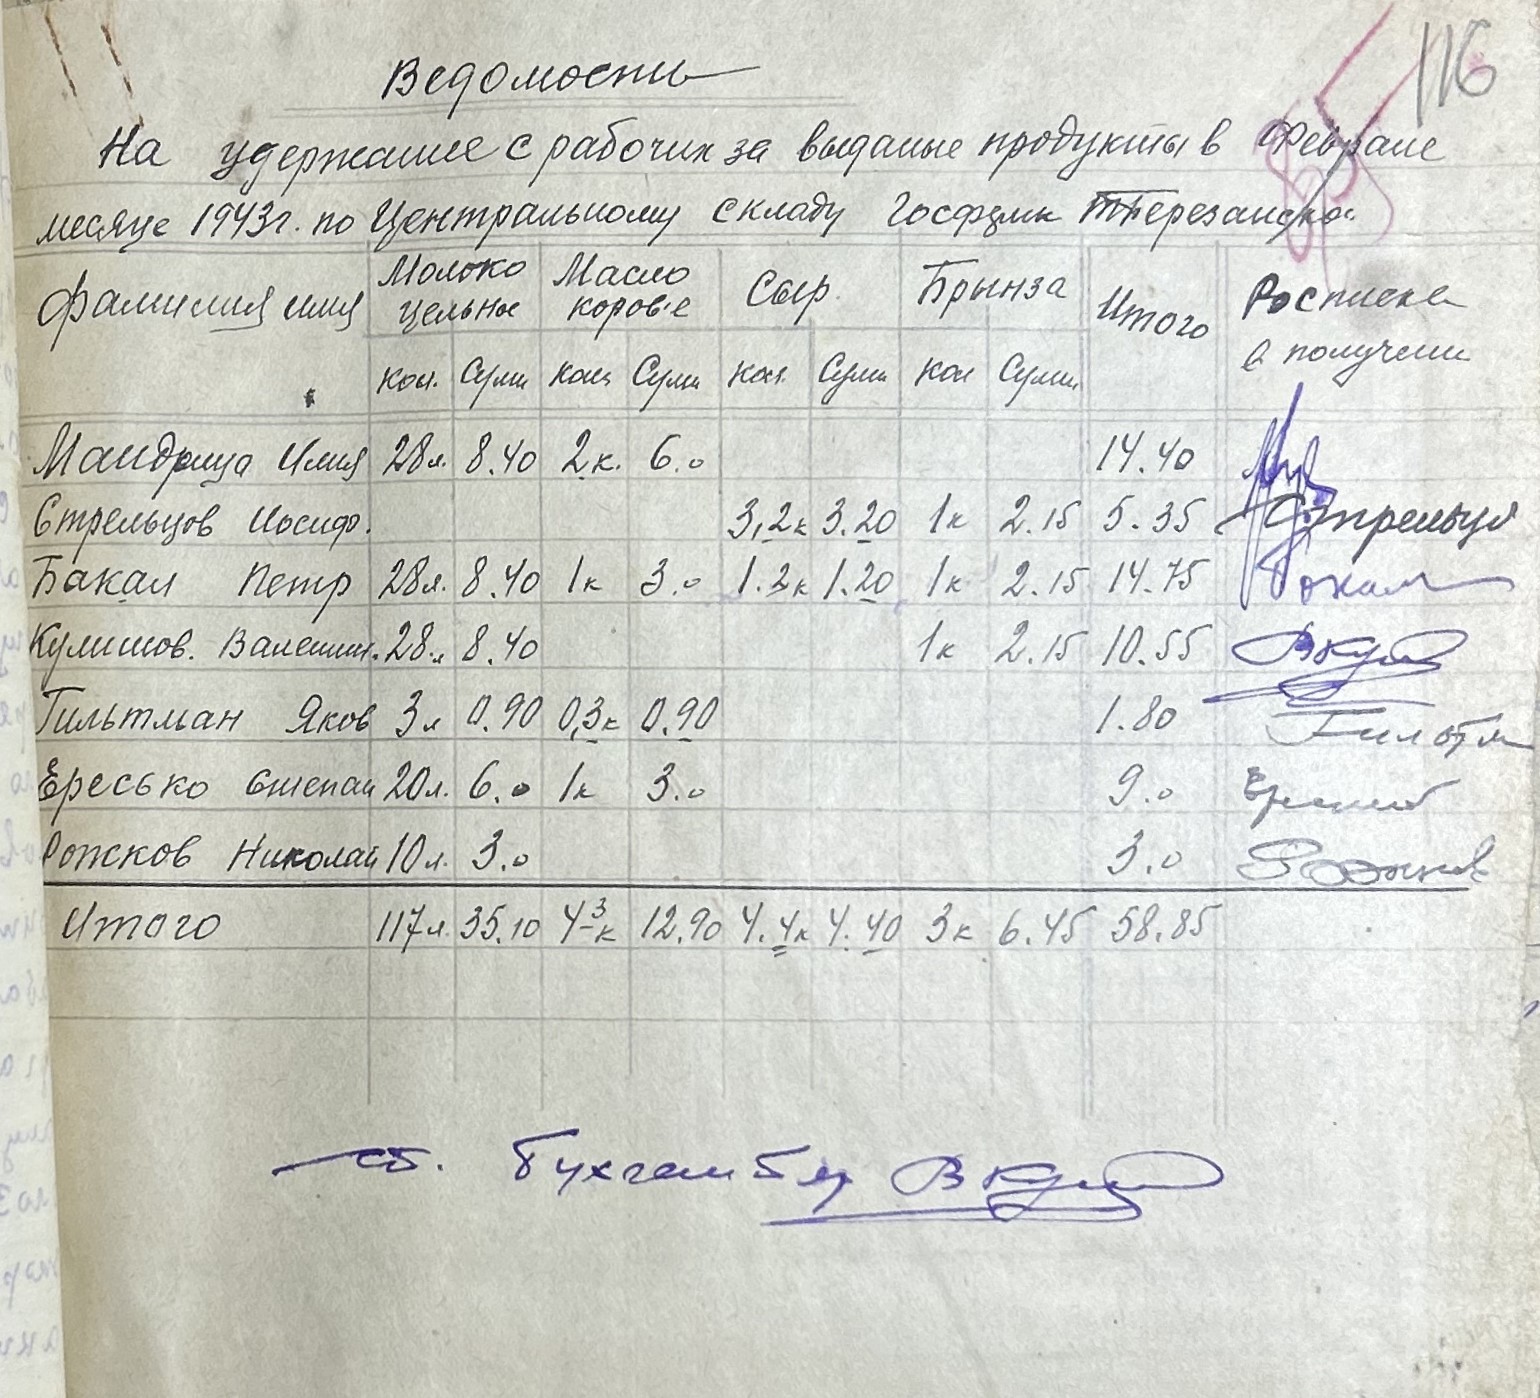 116
85
Ведомость
На удержание с рабочих за выданые продукты в Феврале
месяце 1943г. по Центральному складу Госферм Терезанска
Фамилия имя Молоко цельное Масло коровье Сыр. Брынза Итого Росписка в получении
кол. Сумм кол Сумм кол. Сумм кол Сумм.
Мандрица Илия 28л. 8.40 2к. 6.0 14.40
Стрельцов Иосиф. 3,2к 3.20 1к 2.15 5.35 Стрельцов
Бакал Петр 28л. 8.40 1к 3.0 1.2к 1.20 1к 2.15 14.75 Бакал
Кулишов. Валентин. 28л 8.40 1к 2.15 10.55 ВКул
Гильтман Яков 3л 0.90 0,3к 0.90 1.80 Гильтм
Ересько Степан 20л. 6.0 1к 3.0 9.0
Рожков Николай 10л. 3.0 3.0 Рожков
Итого 117л. 35.10 4-3к 12.90 4.4к 4.40 3к 6.45 58.85
ст. Бухгалтер ВКул